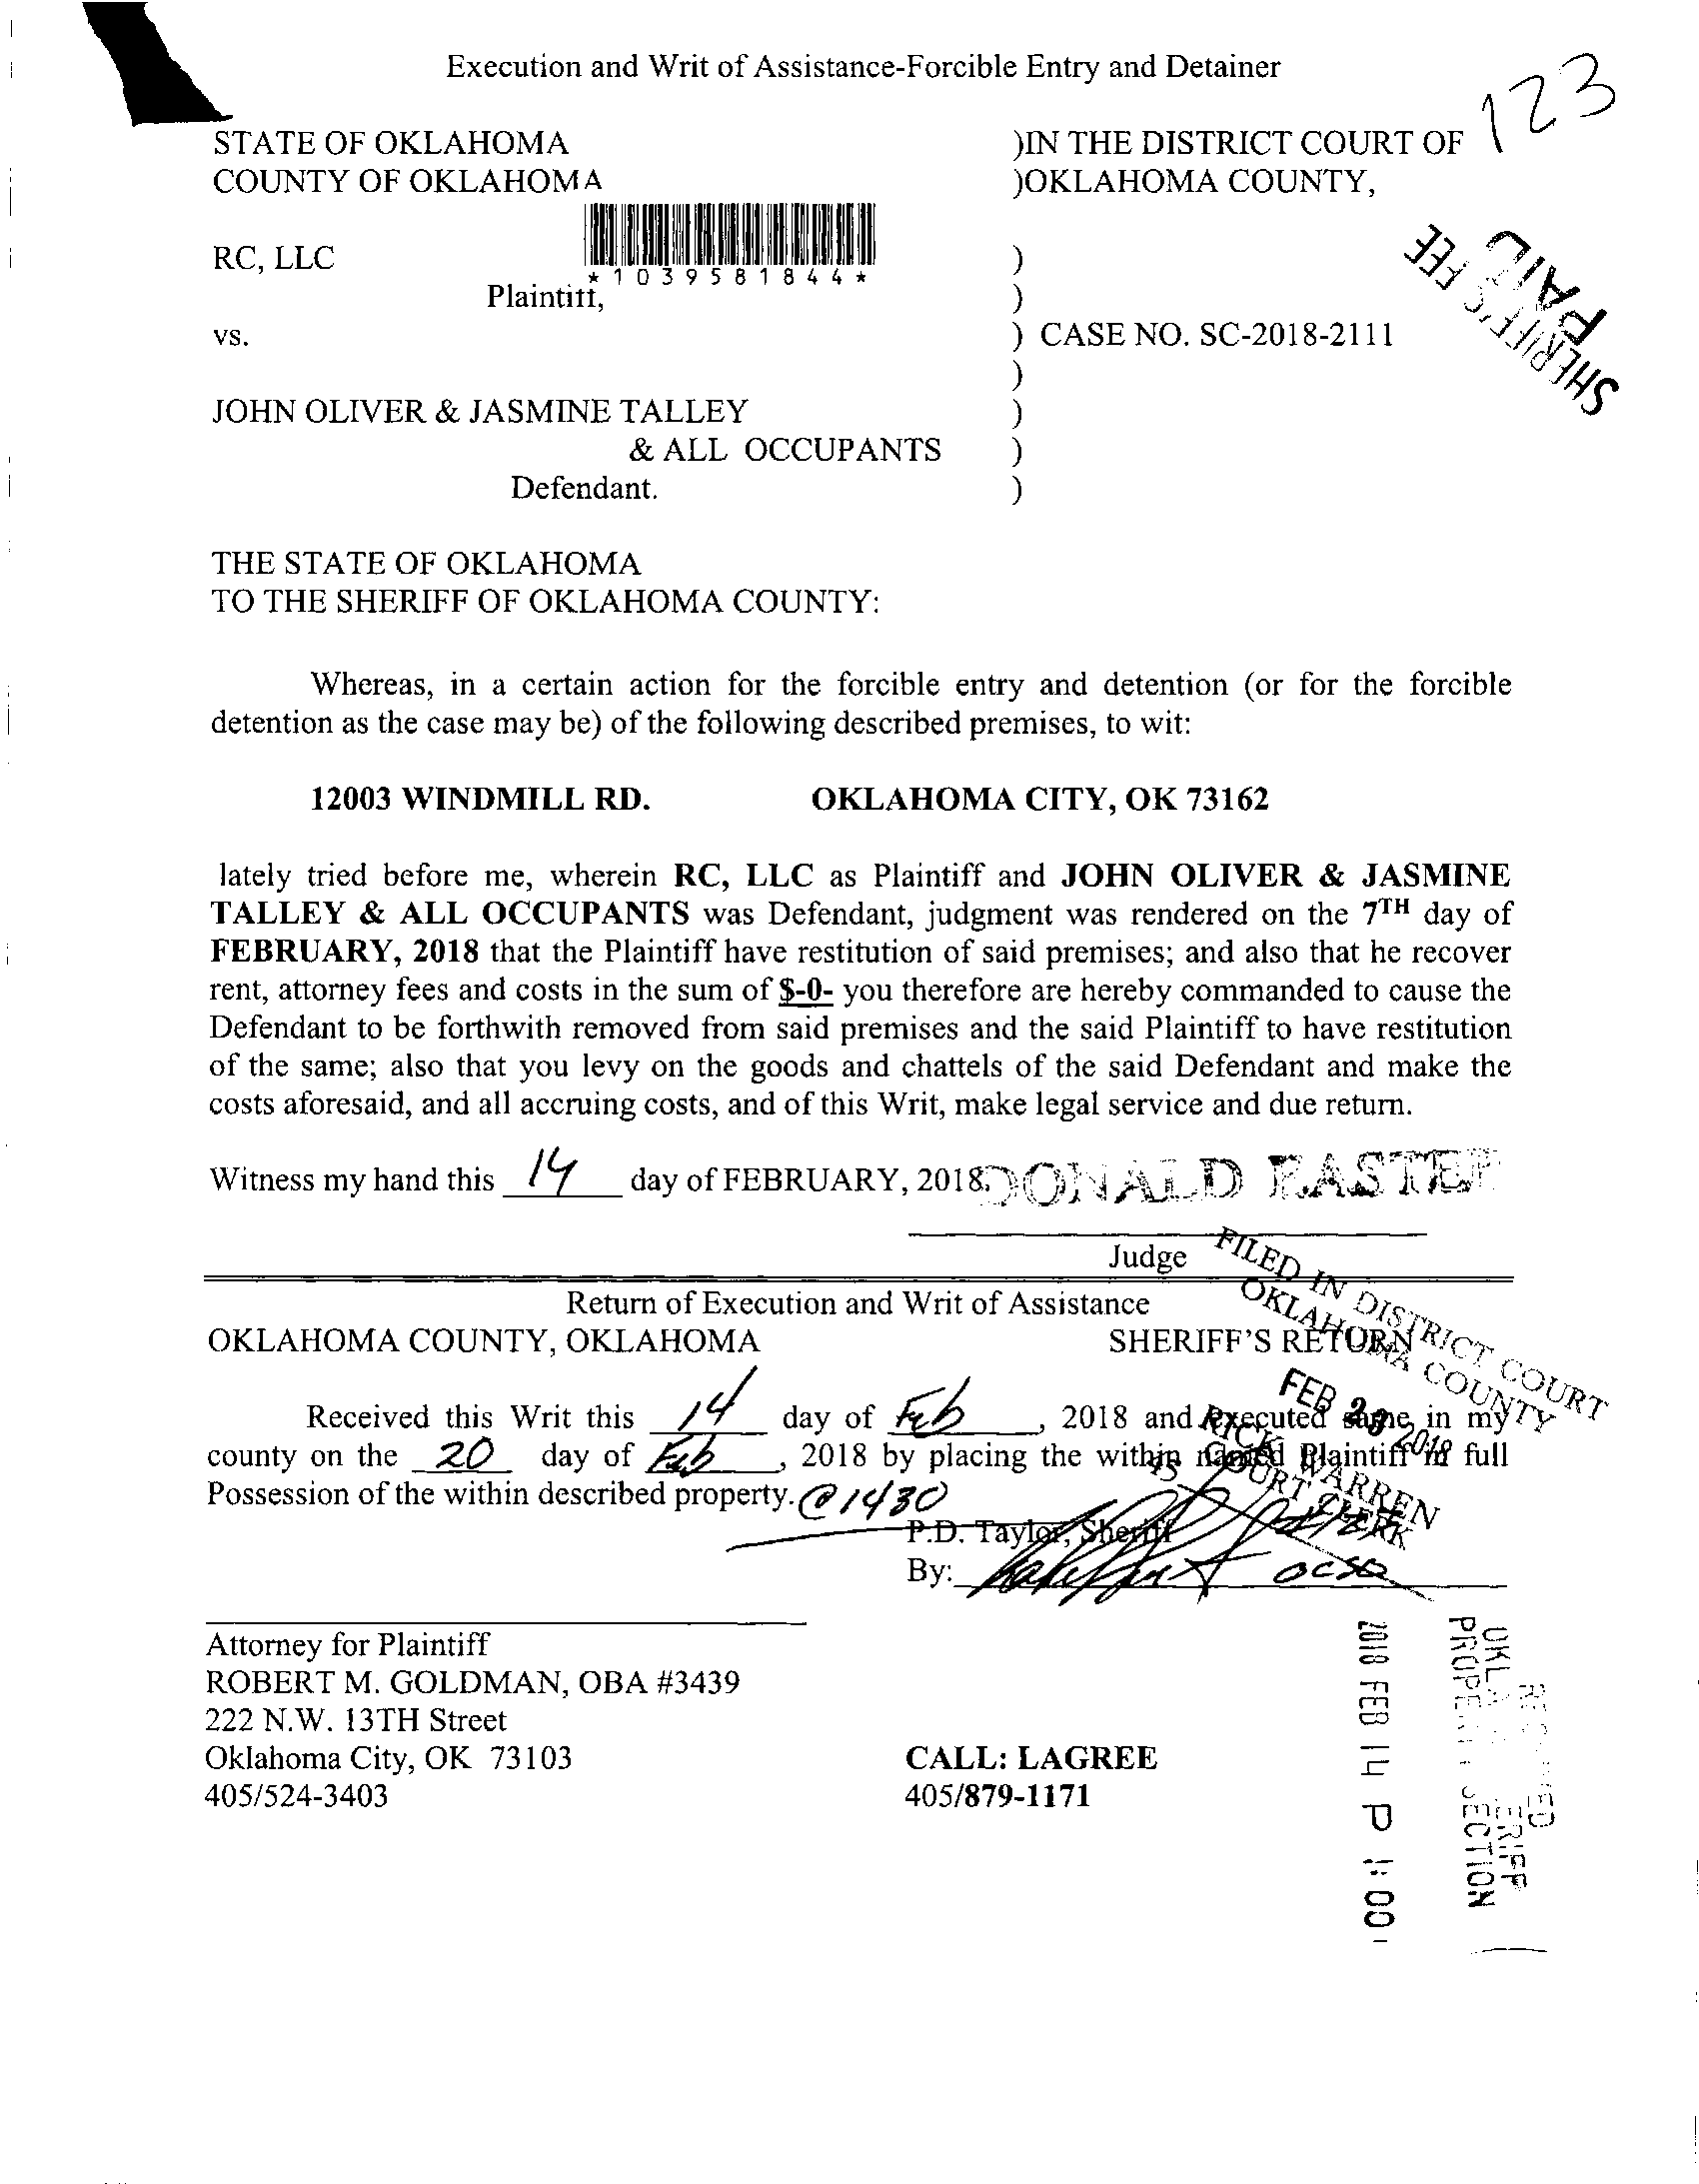 Execution and Writ of Assistance-Forcible Entry and Detainer
123
STATE OF OKLAHOMA )IN THE DISTRICT COURT OF
COUNTY OF OKLAHOMA )OKLAHOMA COUNTY,
SHERIFF'S FEE
PAID
RC, LLC )
*1039581844*
Plaintiff, )
vs. ) CASE NO. SC-2018-2111
)
JOHN OLIVER & JASMINE TALLEY )
& ALL OCCUPANTS )
Defendant. )
THE STATE OF OKLAHOMA
TO THE SHERIFF OF OKLAHOMA COUNTY:
Whereas, in a certain action for the forcible entry and detention (or for the forcible
detention as the case may be) of the following described premises, to wit:
12003 WINDMILL RD. OKLAHOMA CITY, OK 73162
lately tried before me, wherein RC, LLC as Plaintiff and JOHN OLIVER & JASMINE
TALLEY & ALL OCCUPANTS was Defendant, judgment was rendered on the 7TH day of
FEBRUARY, 2018 that the Plaintiff have restitution of said premises; and also that he recover
rent, attorney fees and costs in the sum of $-0- you therefore are hereby commanded to cause the
Defendant to be forthwith removed from said premises and the said Plaintiff to have restitution
of the same; also that you levy on the goods and chattels of the said Defendant and make the
costs aforesaid, and all accruing costs, and of this Writ, make legal service and due return.
Witness my hand this 14 day of FEBRUARY, 2018. DONALD EASTER
Judge
FILED IN DISTRICT COURT
OKLAHOMA COUNTY
Return of Execution and Writ of Assistance
OKLAHOMA COUNTY, OKLAHOMA SHERIFF'S RETURN
FEB 2 2018
RICK WARREN
COURT CLERK
Received this Writ this 14 day of Feb, 2018 and executed same in my
county on the 20 day of Feb, 2018 by placing the within named Plaintiff in full
Possession of the within described property. @ 1430
P.D. Taylor, Sheriff
By: OCSO
Attorney for Plaintiff
ROBERT M. GOLDMAN, OBA #3439
222 N.W. 13TH Street
Oklahoma City, OK 73103 CALL: LAGREE
405/524-3403 405/879-1171
2018 FEB 14 P 1:00
SECTION